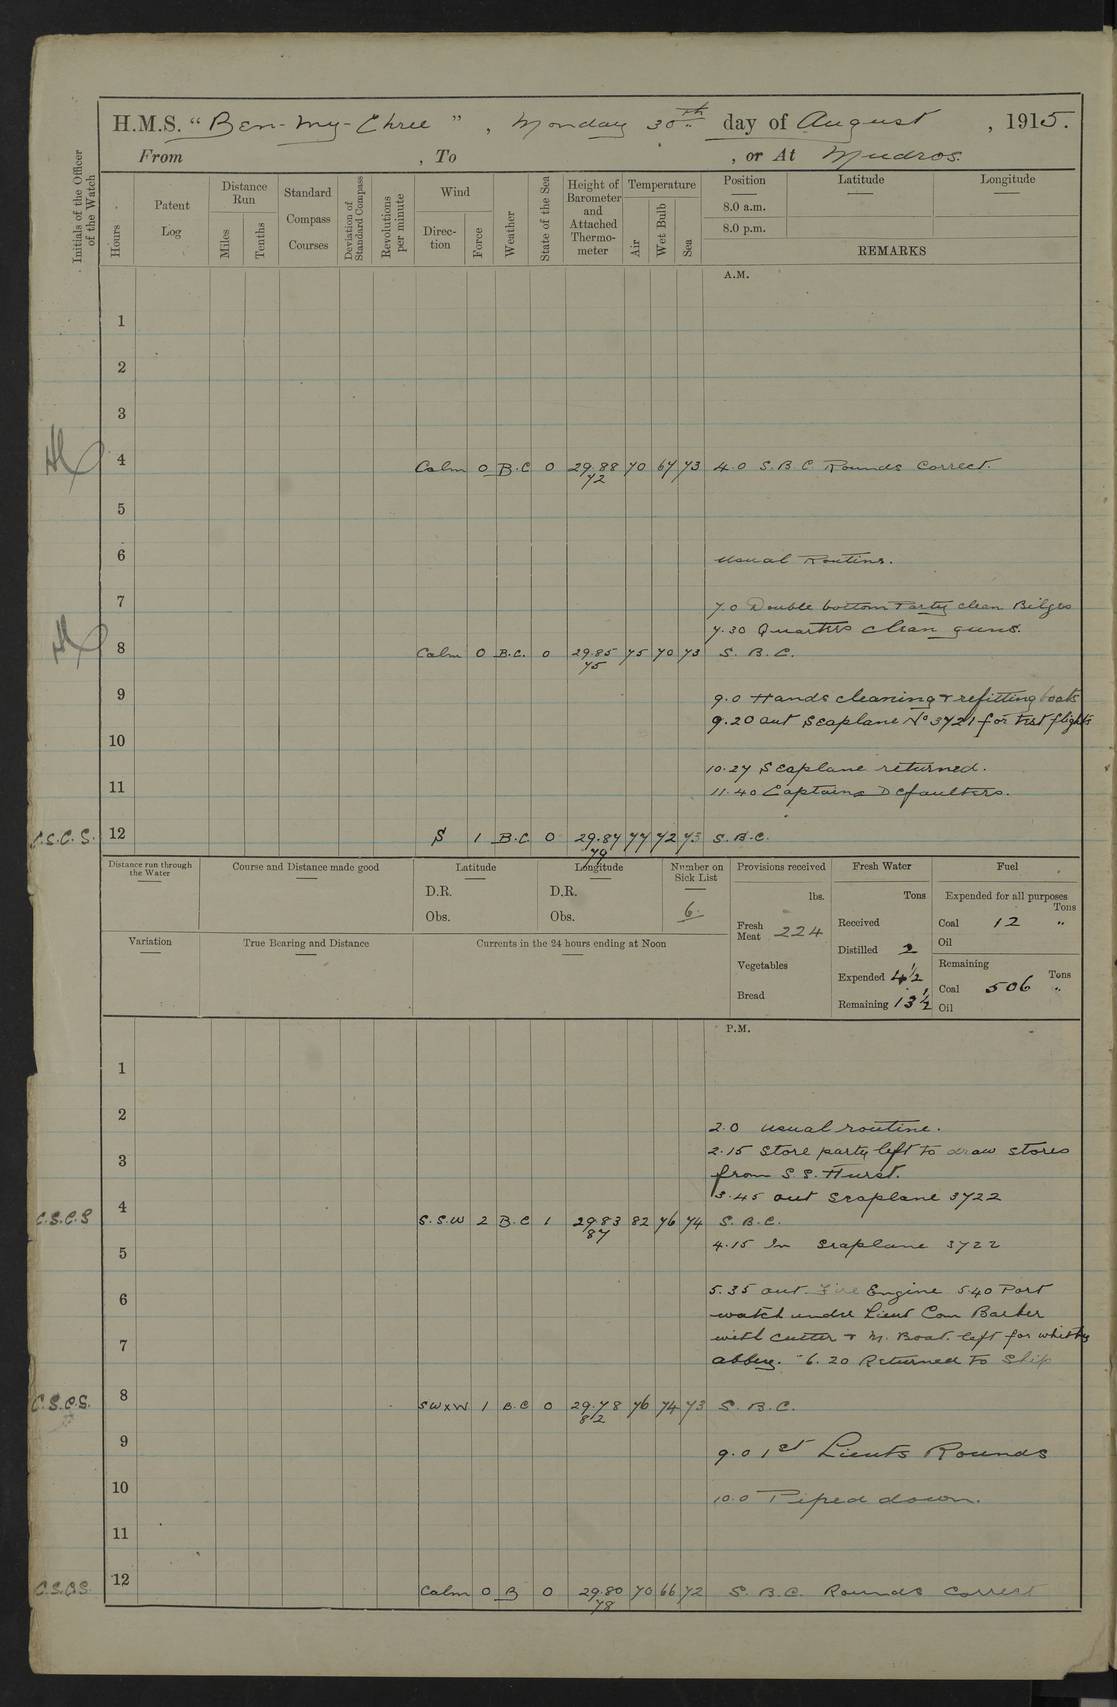 H.M.S. “Ben-my-Chree”, Monday 30th day of August, 1915.
From , To , or At Mudros.
Initials of the Officer of the Watch
Hours
Patent Log
Distance Run
Miles
Tenths
Standard Compass Courses
Deviation of Standard Compass
Revolutions per minute
Wind
Direction
Force
Weather
State of the Sea
Height of Barometer and Attached Thermometer
Temperature
Air
Wet Bulb
Sea
Position
8.0 a.m.
8.0 p.m.
Latitude
Longitude
REMARKS
A.M.
1
2
3
4 Calm 0 B.C 0 29.88 70 67 73 4.0 S.B.C. Rounds Correct.
72
5
6 Usual Routine.
7 7.0 Double bottom Party clean Bilges
7.30 Quarters clean guns.
8 Calm 0 B.C. 0 29.85 75 70 73 S. B. C.
75
9 9.0 Hands cleaning & refitting boats
9.20 out Seaplane No 3721 for test flights
10
10.27 Seaplane returned.
11 11.40 Captains Defaulters.
C.S.C.S. 12 S 1 B.C. 0 29.87 77 72 73 S.B.C.
79
Distance run through the Water
Course and Distance made good
Latitude
D.R.
Obs.
Longitude
D.R.
Obs.
Number on Sick List
6
Provisions received
lbs.
Fresh Meat 224
Vegetables
Bread
Fresh Water
Tons
Received
Distilled 2
Expended 4½
Remaining 13½
Fuel
Expended for all purposes
Tons
Coal 12 "
Oil
Remaining
Tons
Coal 506 "
Oil
Variation
True Bearing and Distance
Currents in the 24 hours ending at Noon
P.M.
1
2 2.0 usual routine.
3 2.15 Store party left to draw stores
from S.S. Hurst.
3.45 out Seaplane 3722
C.S.C.S 4 S.S.W 2 B.C 1 29.83 82 76 74 S.B.C.
87
5 4.15 In Seaplane 3722
6 5.35 out Fire Engine 5.40 Port
watch under Lieut Com Barber
7 with Cutter & M. Boat. left for whitby
abbey. 6.20 Returned to Ship
C.S.C.S. 8 SWxW 1 B.C 0 29.78 76 74 73 S. B.C.
82
9 9.0 1st Lieuts Rounds
10 10.0 Piped down.
11
C.S.C.S. 12 Calm 0 B 0 29.80 70 66 72 S.B.C. Rounds Correct
78